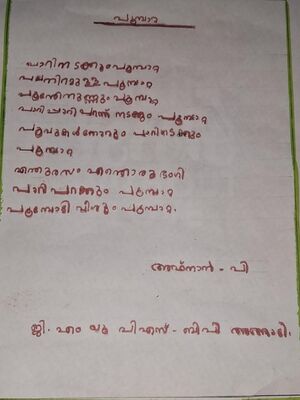 പൂമ്പാറ്റ
പാറിനടക്കും പൂമ്പാറ്റ
പലനിറമുള്ള പൂമ്പാറ്റ
പൂന്തേനുണ്ണും പൂമ്പാറ്റ
പാറിപ്പാറി പറന്ന് നടക്കും പൂമ്പാറ്റ
പൂവുകൾതോറും പാറിനടക്കും
പൂമ്പാറ്റ
എന്തുരസം എന്തൊരു ഭംഗി
പാറി പറക്കും പൂമ്പാറ്റ
പൂമ്പോടി വിതറും പൂമ്പാറ്റ.
അഫ്നാൻ - പി
ജി. എം യു പിഎസ് - ബിപി അങ്ങാടി.